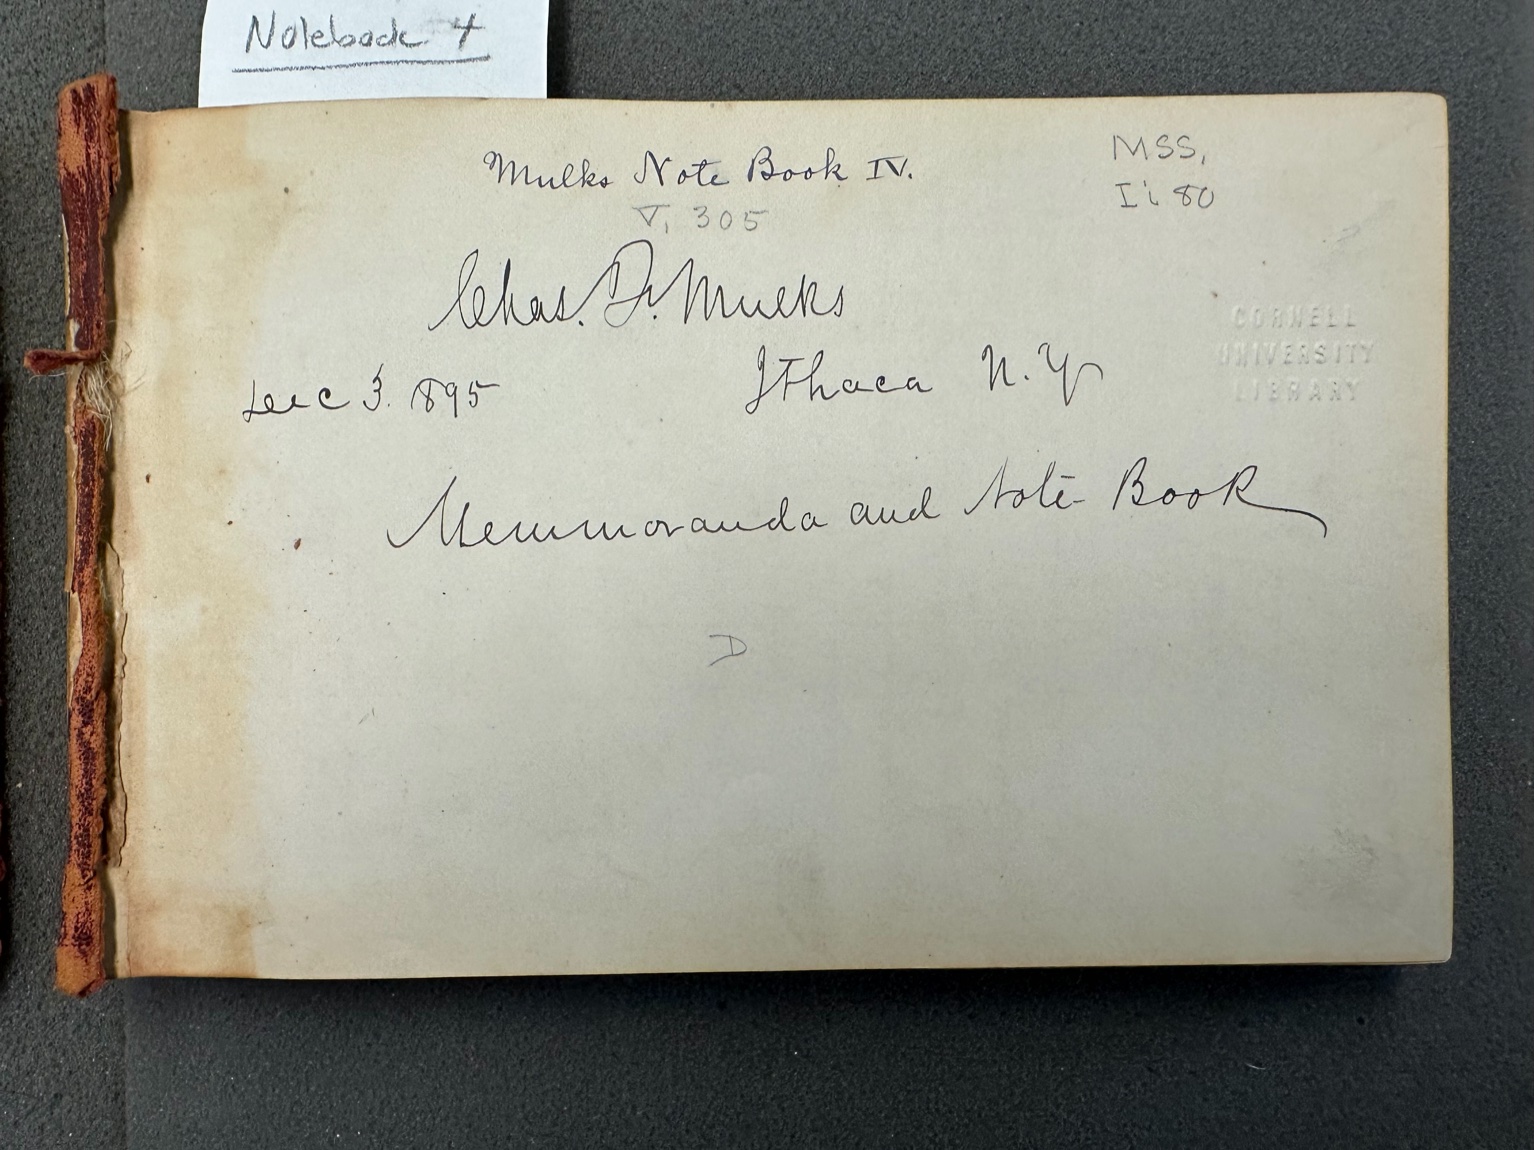 Notebook 4
Mulks Note Book IV.
MSS,
Ii 80
V, 305
Chas. D. Mulks
CORNELL
UNIVERSITY
LIBRARY
Dec 3. 895
Ithaca N.Y
Memmoranda and Note Book
D